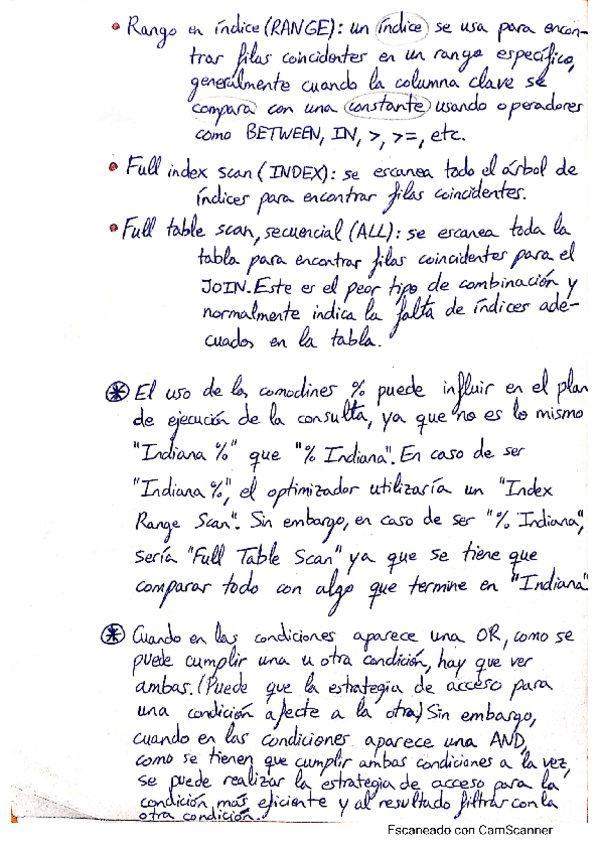 • Rango en índice (RANGE): un índice se usa para encon-
trar filas coincidentes en un rango específico,
generalmente cuando la columna clave se
compara con una constante usando operadores
como BETWEEN, IN, >, >=, etc.
• Full index scan (INDEX): se escanea todo el árbol de
índices para encontrar filas coincidentes.
• Full table scan, secuencial (ALL): se escanea toda la
tabla para encontrar filas coincidentes para el
JOIN. Este es el peor tipo de combinación y
normalmente indica la falta de índices ade-
cuados en la tabla.
* El uso de los comodines % puede influir en el plan
de ejecución de la consulta, ya que no es lo mismo
"Indiana %" que "% Indiana". En caso de ser
"Indiana %", el optimizador utilizaría un "Index
Range Scan". Sin embargo, en caso de ser "% Indiana",
sería "Full Table Scan" ya que se tiene que
comparar todo con algo que termine en "Indiana"
* Cuando en las condiciones aparece una OR, como se
puede cumplir una u otra condición, hay que ver
ambas. (Puede que la estrategia de acceso para
una condición afecte a la otra) Sin embargo,
cuando en las condiciones aparece una AND,
como se tienen que cumplir ambas condiciones a la vez,
se puede realizar la estrategia de acceso para la
condición más eficiente y al resultado filtrar con la
otra condición.
Escaneado con CamScanner